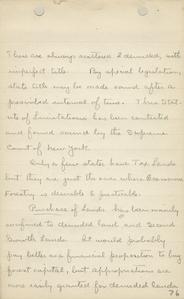 These are always scattered & denuded, with
imperfect title. By special legislation,
state title may be made sound after a
prescribed interval of time. This Stat-
ute of Limitations has been contested
and found sound by the Supreme
Court of New York.
Only a few states have Tax Lands
but they are just the ones where Economic
Forestry is desirable & practicable.
Purchase of Lands has been mainly
confined to denuded land and Second
Growth Lands. It would probably
pay better as a financial proposition to buy
forest capital, but appropriations are
more easily granted for denuded lands
76